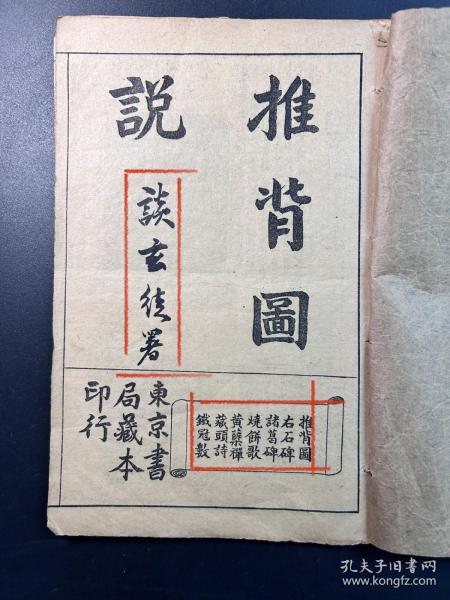 推背圖
説
談玄徒署
推背圖
右石碑
諸葛碑
燒餅歌
黃蘗禪
藏頭詩
鐵冠數
東京書
局藏本
印行
孔夫子旧书网
www.kongfz.com